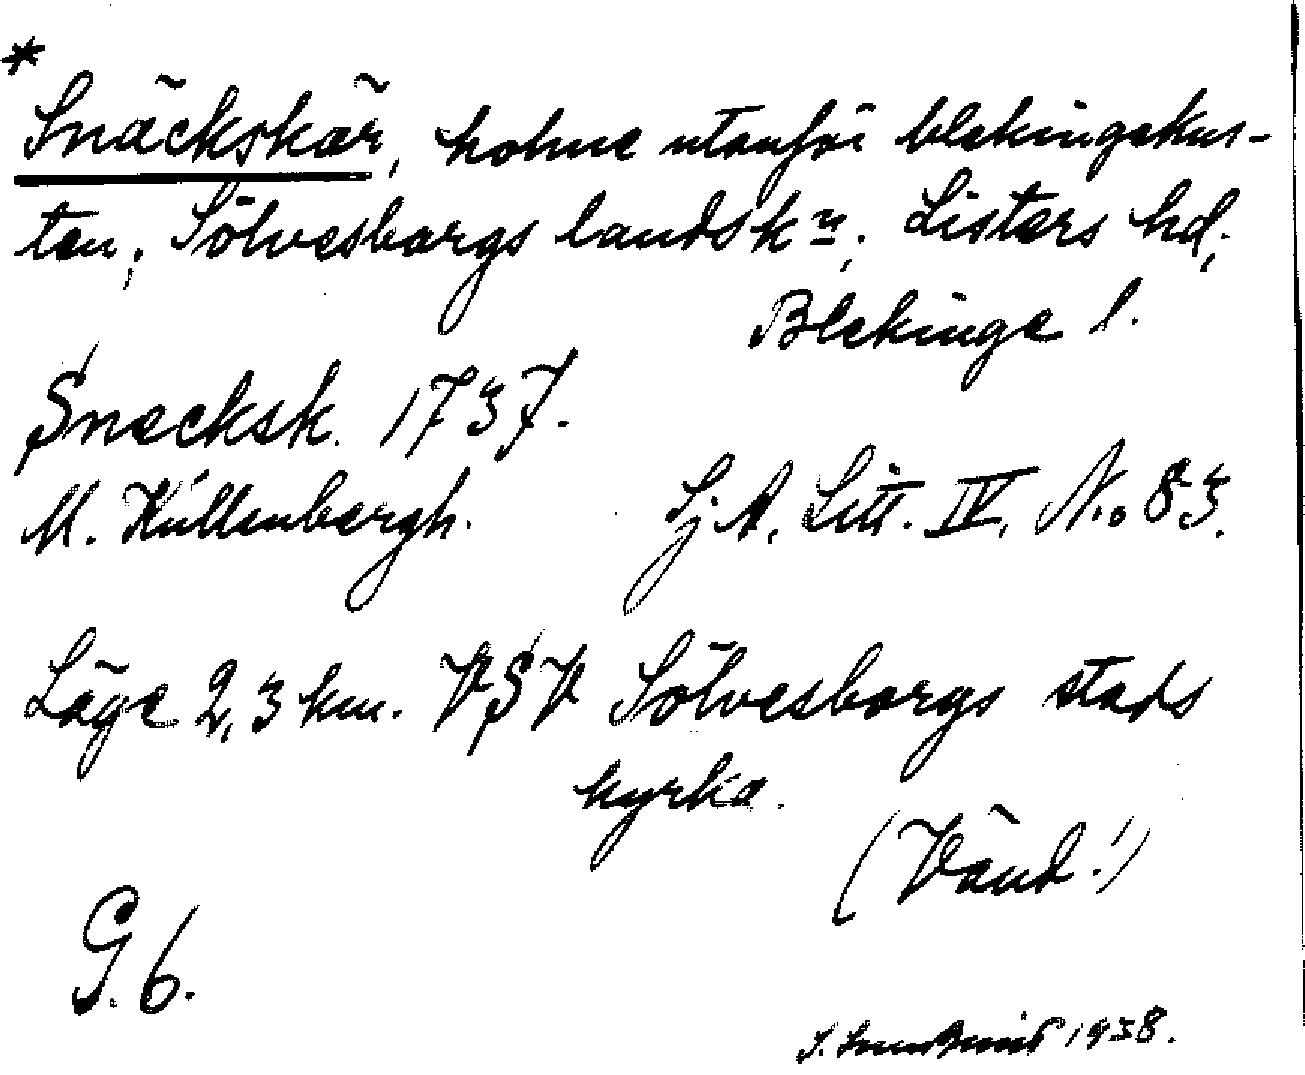 *
Snäckskär, holme utanför blekingekus-
ten, Sölvesborgs landskn, Listers hd,
Blekinge l.
Snecksk. 1737.
M. Küllenbergh. Sj. A. Litt. IV, No 83.
Läge 2,3 km. VSV Sölvesborgs stads
kyrka.
(Vänd!)
G. 6.
1938.